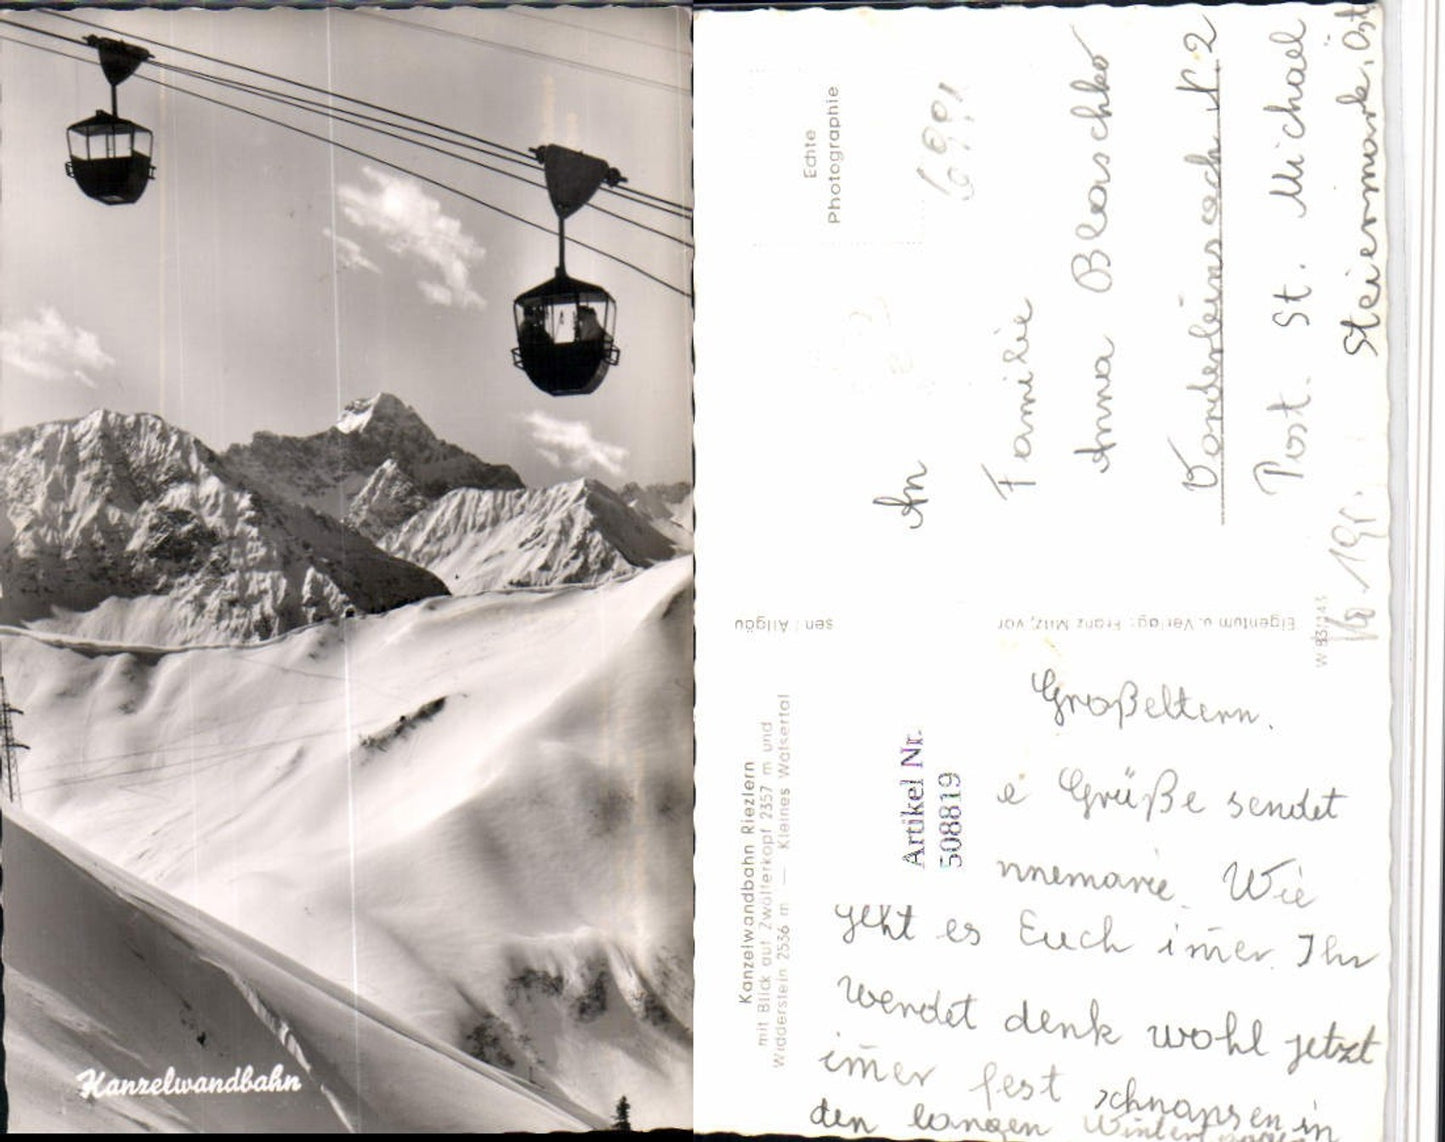 Kanzelwandbahn
Echte
Photographie
6991
An
Familie
Anna Blaschko
Vorderlainsach N. 2
Post. St. Michael
Steiermark. Öst
Eigentum u. Verlag: Franz Milz, vor
sen / Allgäu
Kanzelwandbahn Riezlern
mit Blick auf Zwölferkopf 2357 m und
Widderstein 2536 m — Kleines Walsertal
Artikel Nr.
508819
Großeltern.
e Grüße sendet
nnemarie. Wie
geht es Euch im̄er. Ihr
werdet denk wohl jetzt
im̄er fest schnapsen in
den langen